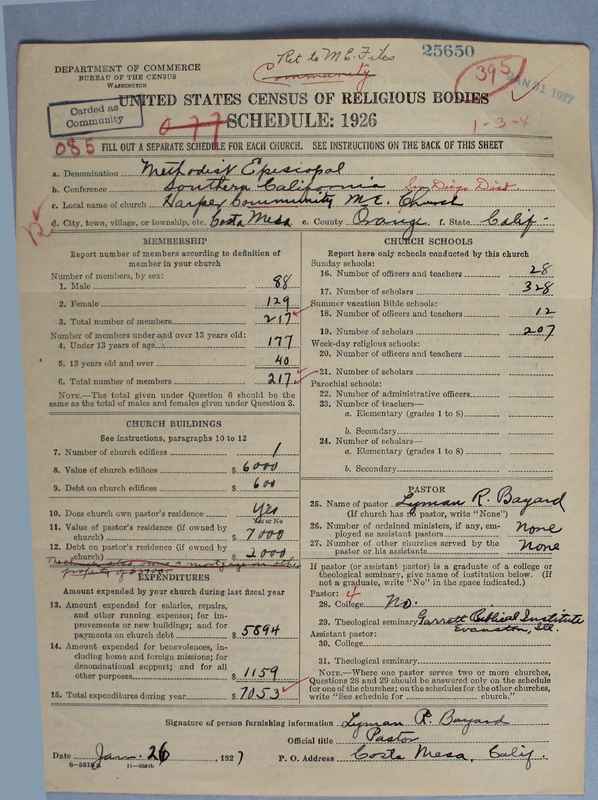 Ret to M.E. Files
25650
DEPARTMENT OF COMMERCE
BUREAU OF THE CENSUS
WASHINGTON
Community
395
JAN 31 1927
UNITED STATES CENSUS OF RELIGIOUS BODIES
Carded as
Community
077
SCHEDULE: 1926
1-3-4
085
FILL OUT A SEPARATE SCHEDULE FOR EACH CHURCH. SEE INSTRUCTIONS ON THE BACK OF THIS SHEET
a. Denomination Methodist Episcopal
b. Conference Southern California San Diego Dist.
c. Local name of church Harper Community M.E. Church
d. City, town, village, or township, etc. Costa Mesa e. County Orange f. State Calif.
MEMBERSHIP
Report number of members according to definition of
member in your church
Number of members, by sex:
1. Male 88
2. Female 129
3. Total number of members 217
Number of members under and over 13 years old:
4. Under 13 years of age 177
5. 13 years old and over 40
6. Total number of members 217
NOTE.—The total given under Question 6 should be the
same as the total of males and females given under Question 3.
CHURCH BUILDINGS
See instructions, paragraphs 10 to 12
7. Number of church edifices 1
8. Value of church edifices $ 6000
9. Debt on church edifices $ 600
10. Does church own pastor's residence Yes
Yes or No
11. Value of pastor's residence (if owned by
church) $ 7000
12. Debt on pastor's residence (if owned by
church) $ 2000
The church also owns a mortgage on other
property of $3700.
EXPENDITURES
Amount expended by your church during last fiscal year
13. Amount expended for salaries, repairs,
and other running expenses; for im-
provements or new buildings; and for
payments on church debt $ 5894
14. Amount expended for benevolences, in-
cluding home and foreign missions; for
denominational support; and for all
other purposes $ 1159
15. Total expenditures during year $ 7053
CHURCH SCHOOLS
Report here only schools conducted by this church
Sunday schools:
16. Number of officers and teachers 28
17. Number of scholars 328
Summer vacation Bible schools:
18. Number of officers and teachers 12
19. Number of scholars 207
Week-day religious schools:
20. Number of officers and teachers
21. Number of scholars
Parochial schools:
22. Number of administrative officers
23. Number of teachers—
a. Elementary (grades 1 to 8)
b. Secondary
24. Number of scholars—
a. Elementary (grades 1 to 8)
b. Secondary
PASTOR
25. Name of pastor Lyman R. Bayard
(If church has no pastor, write "None")
26. Number of ordained ministers, if any, em-
ployed as assistant pastors None
27. Number of other churches served by the
pastor or his assistants None
If pastor (or assistant pastor) is a graduate of a college or
theological seminary, give name of institution below. (If
not a graduate, write "No" in the space indicated.)
Pastor: 4
28. College No.
29. Theological seminary Garrett Biblical Institute
Evanston, Ill.
Assistant pastor:
30. College
31. Theological seminary
NOTE.—Where one pastor serves two or more churches,
Questions 28 and 29 should be answered only on the schedule
for one of the churches; on the schedules for the other churches,
write "See schedule for ________ church."
Signature of person furnishing information Lyman R. Bayard
Official title Pastor
Date Jan. 26, 1927 P. O. Address Costa Mesa, Calif.